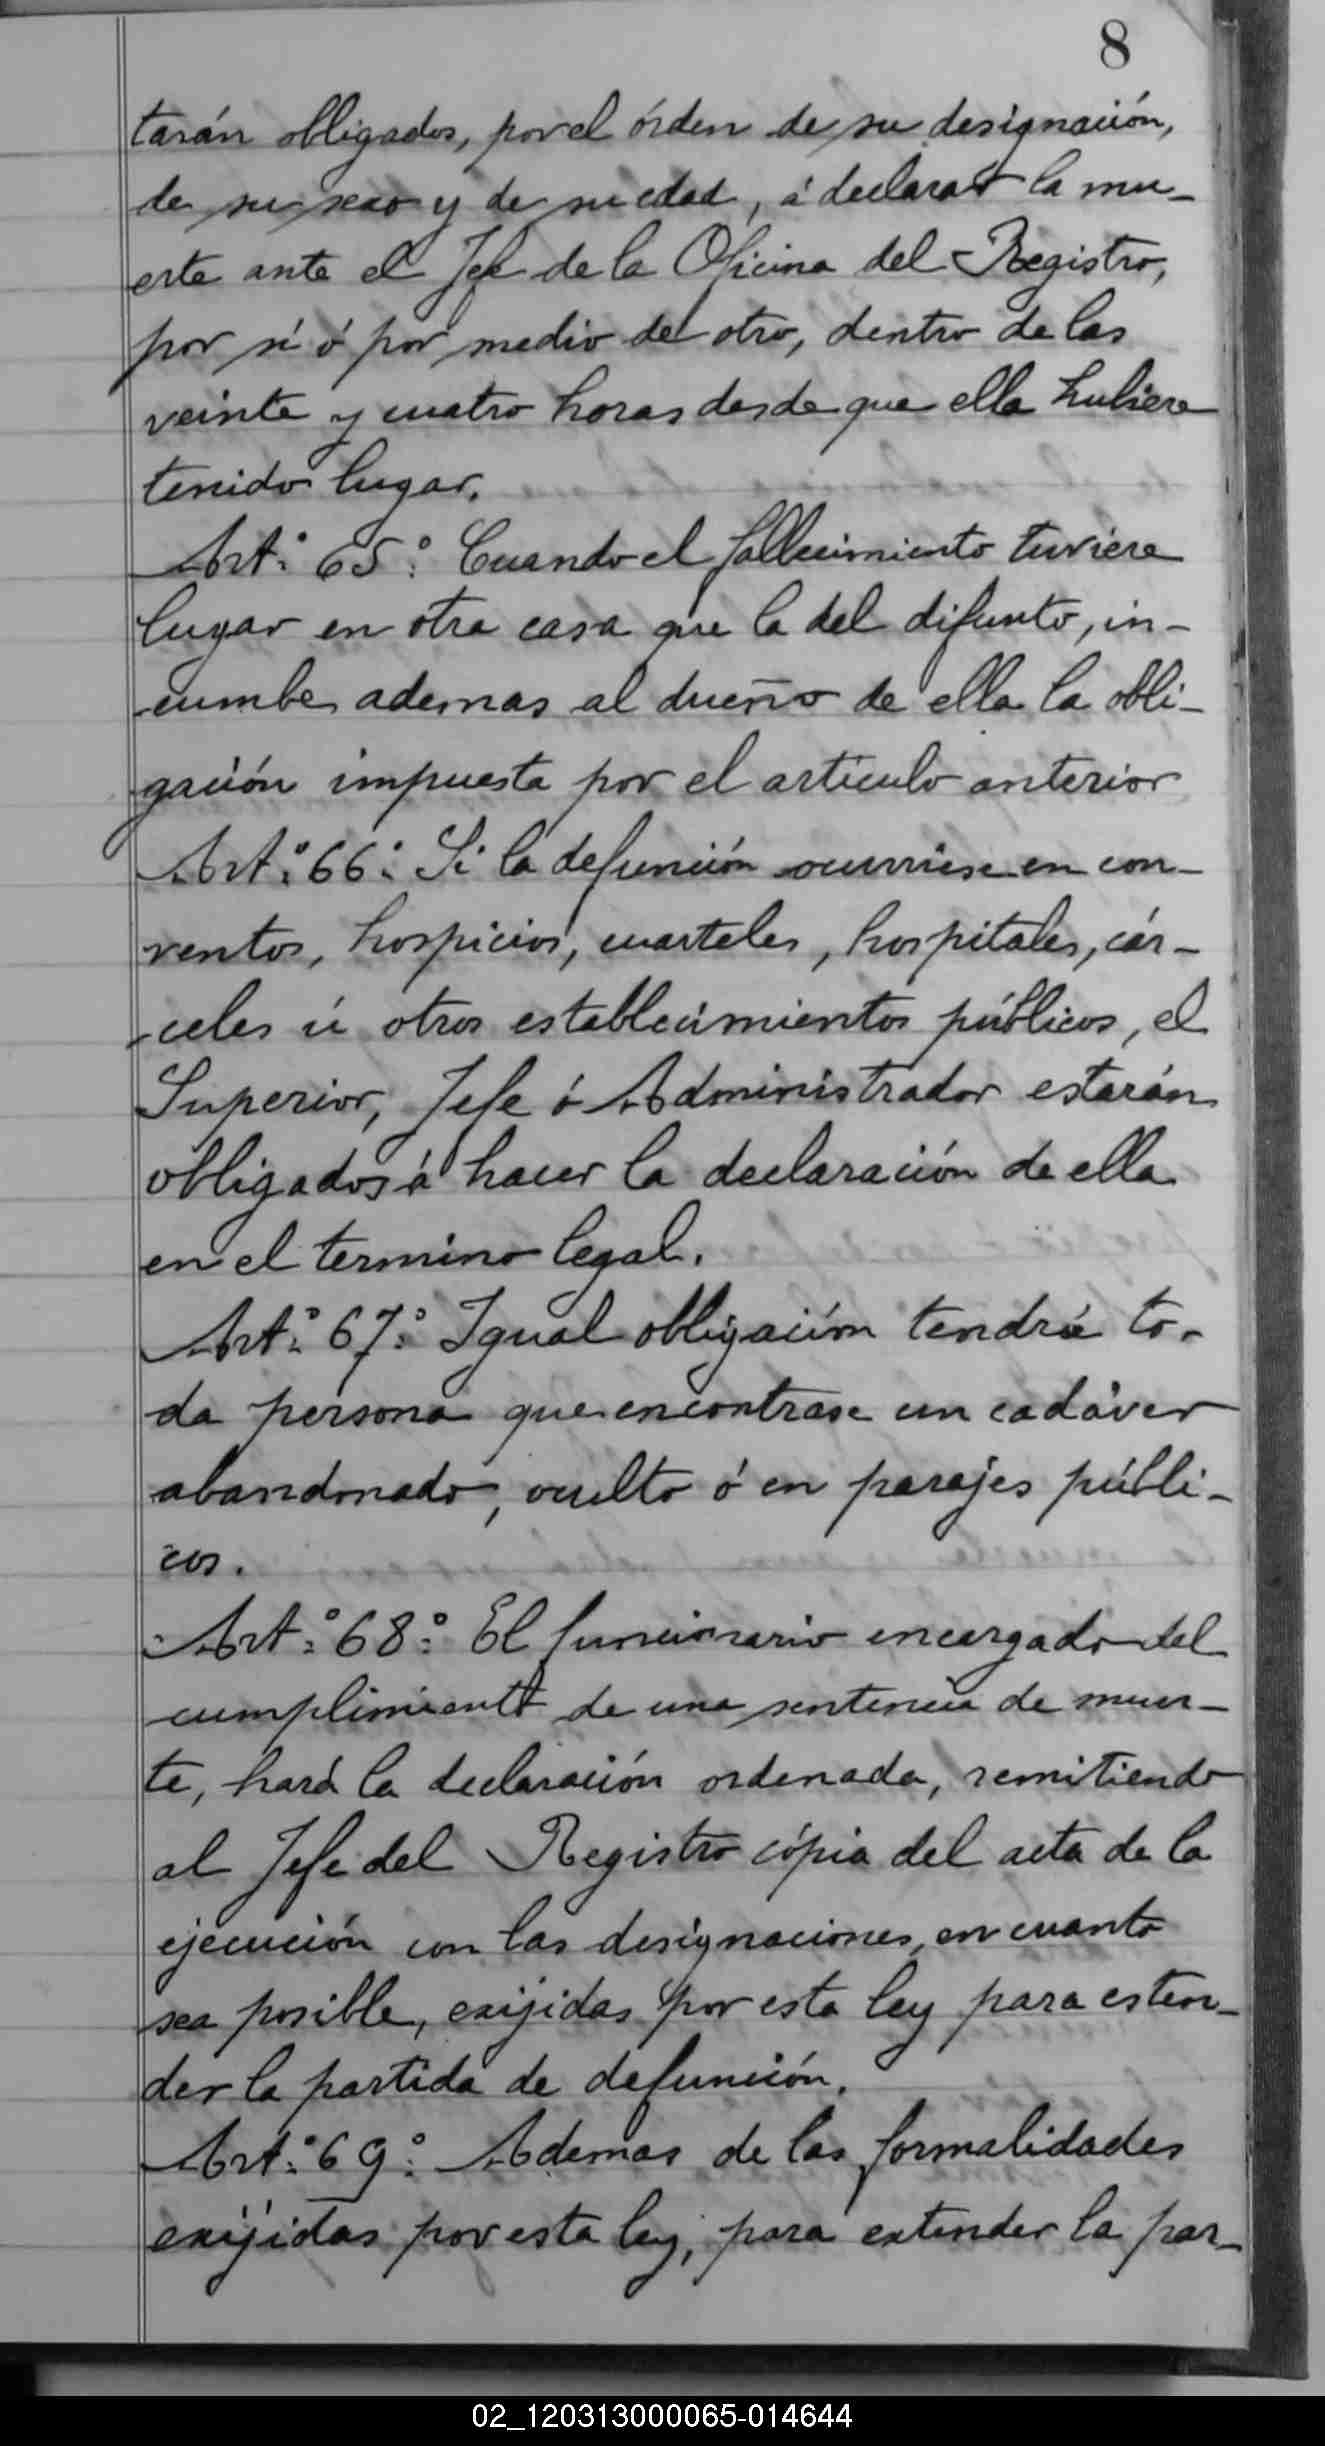 8
tarán obligados, por el órden de su designación,
de su sexo y de su edad, á declarar la mu-
erte ante el Jefe de la Oficina del Registro,
por sí ó por medio de otro, dentro de las
veinte y cuatro horas desde que ella hubiera
tenido lugar.
Art.° 65.° Cuando el fallecimiento tuviera
lugar en otra casa que la del difunto, in-
cumbe ademas al dueño de ella la obli-
gación impuesta por el artículo anterior
Art.° 66.° Si la defunción ocurriese en con-
ventos, hospicios, cuarteles, hospitales, cár-
celes ú otros establecimientos públicos, el
Superior, Jefe ó Administrador estarán
obligados á hacer la declaración de ella
en el termino legal.
Art.° 67.° Igual obligación tendrá to-
da persona que encontrase un cadáver
abandonado, oculto ó en parajes públi-
cos.
Art.° 68.° El funcionario encargado del
cumplimiento de una sentencia de muer-
te, hará la declaración ordenada, remitiendo
al Jefe del Registro cópia del acta de la
ejecución con las designaciones, en cuanto
sea posible, exijidas por esta ley para esten-
der la partida de defunción.
Art.° 69.° Ademas de las formalidades
exijidas por esta ley, para extender la par-
02_120313000065-014644